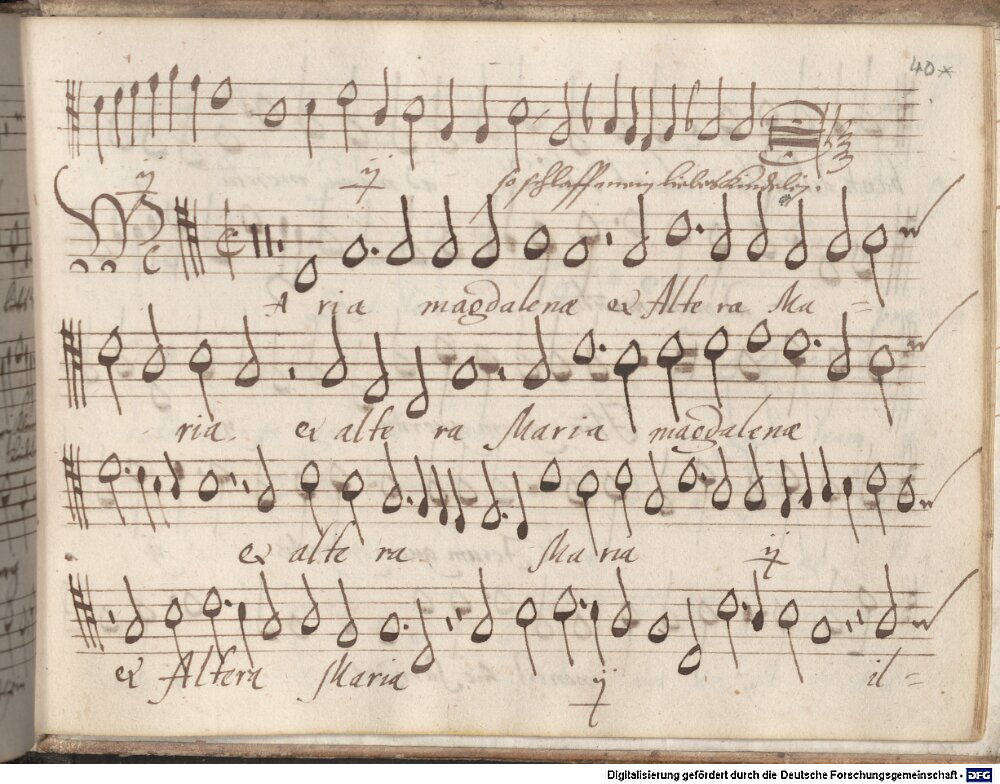 40*
ij ij so schlaff mein liebes kindelin.
M
Aria magdalenæ et Altera Ma =
ria et altera Maria magdalenæ
et altera Maria ij
et Altera Maria ij il =
Digitalisierung gefördert durch die Deutsche Forschungsgemeinschaft - DFG